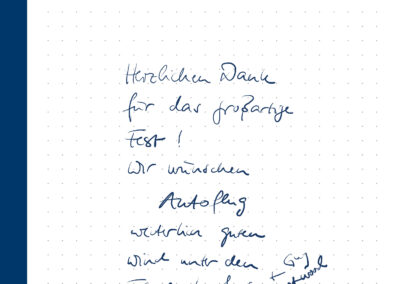 Herzlichen Dank
für das großartige
Fest!
Wir wünschen
Autoflug
weiterhin guten
Wind unter den